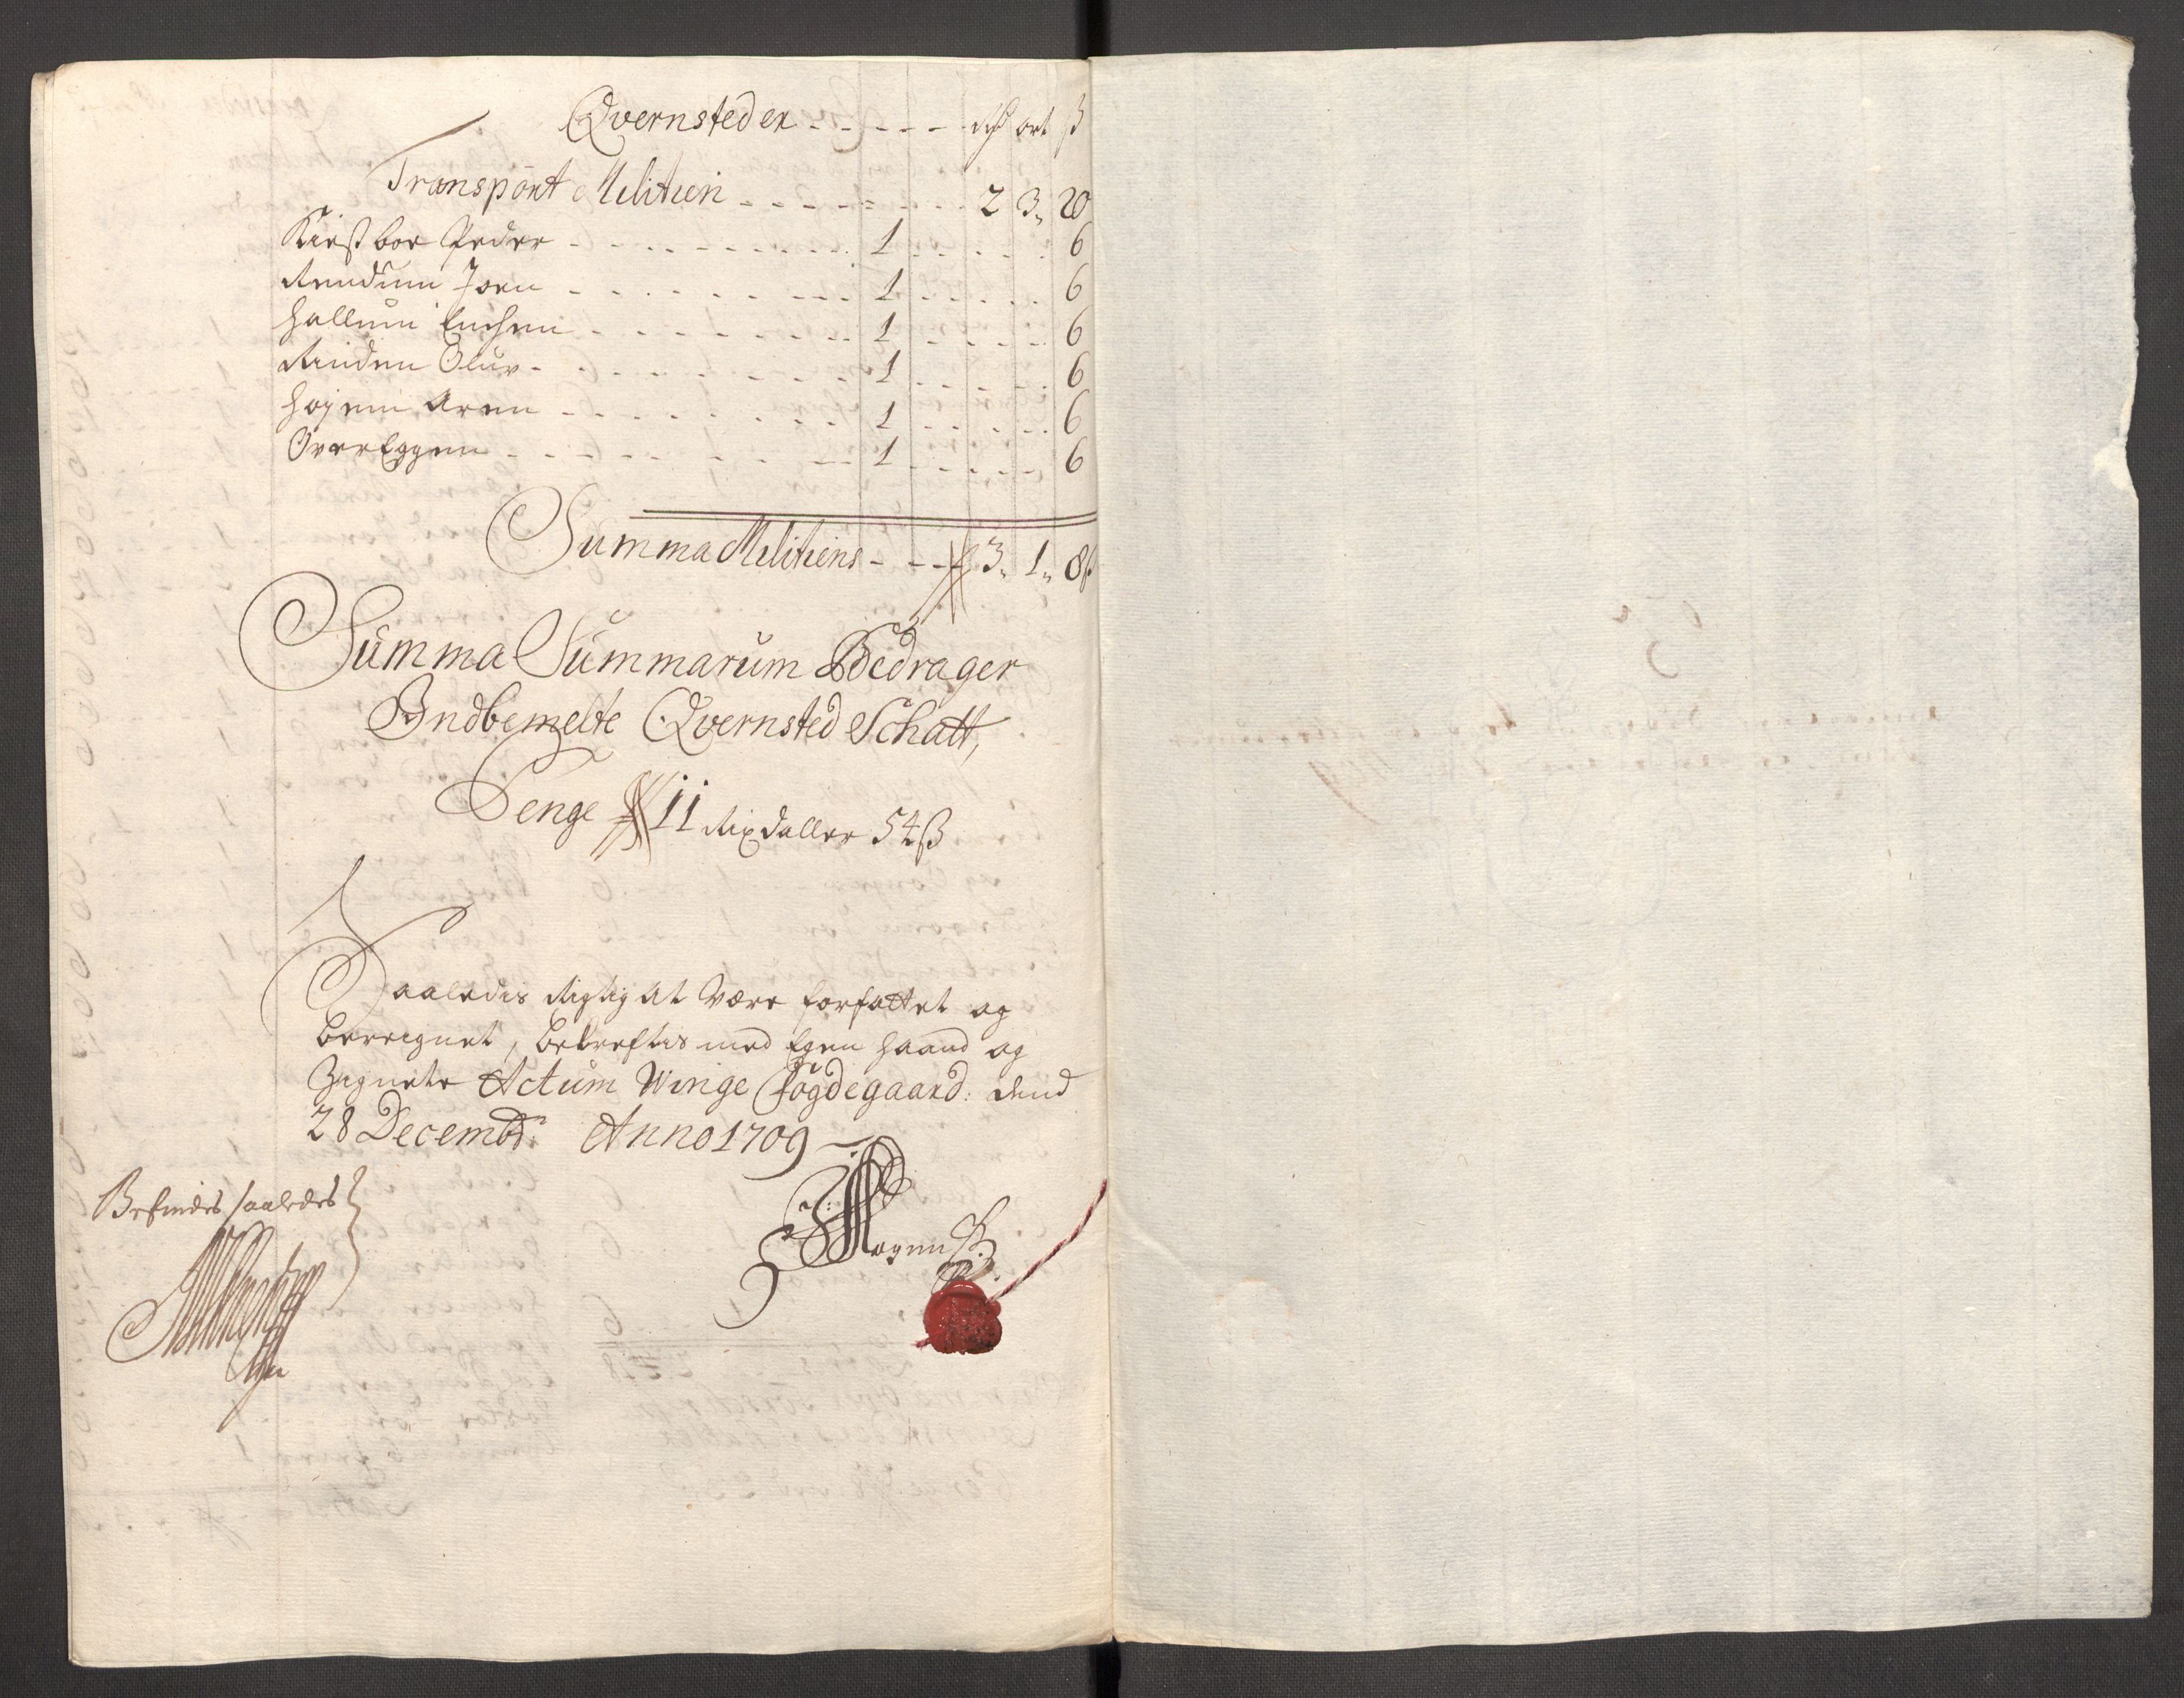 Qvernsteder - - - - - Rdr ort ß
Transport Militien - - - - - - - - 2 3„ 20
Kirstboe Peder - - - - - - - - - 1 - - - - - 6
Rendum Joen - - - - - - - - 1 - - - - - 6
Hallum Enchen - - - - - - - - 1 - - - - - 6
Rinden Oluv - - - - - - - - - 1 - - - - - 6
Hojem Aren - - - - - - - - - 1 - - - - - 6
OverEggen - - - - - - - - - 1 - - - - - 6
Summa Militiens - - - - 3„ 1„ 8ß
Summa Summarum Bedrager
Indbemelte Qvernsted Schatt,
Penge 11 Rixdaller 54ß
Saaledis Rigtig at Være forfattet og
beregnet, bekreftis med Egen haand og
Zignete Actum Winge Fogdegaard: dend
28 Decembr: Anno 1709
Befindes saaledes